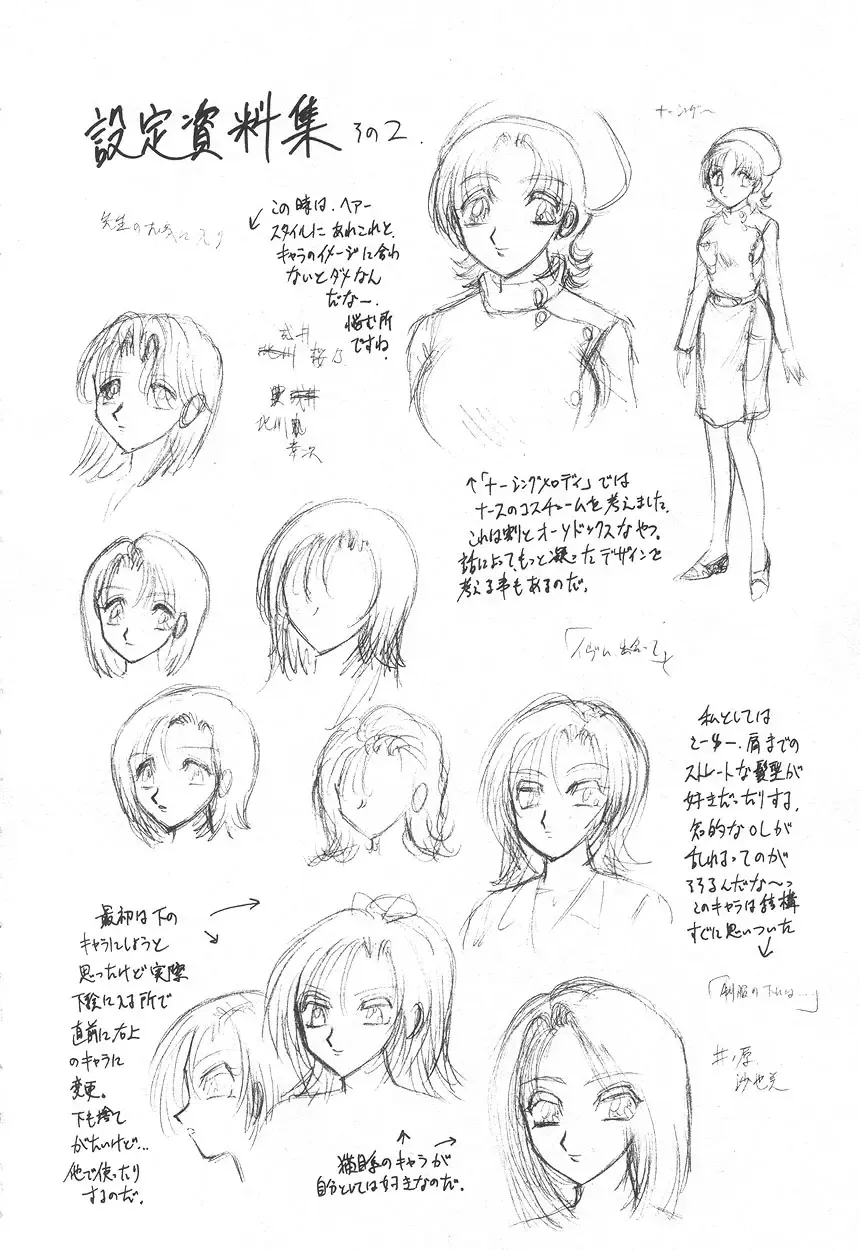 設定資料集 その2.
ナーシング〜
先生のお気に入り
この時は、ヘアー
スタイルにあれこれと、
キャラのイメージに合わ
ないとダメなん
だなー.
悩む所
ですね.
北川
幸次
↑「ナーシングメロディ」では
ナースのコスチュームを考えました.
これは割とオーソドックスなやつ.
話によってもっと凝ったデザインで
考える事もあるのだ.
私としては
えーーと、肩までの
ストレートな髪型が
好きだったりする.
知的なOLが
乱れるってのが
そそるんだな〜っ
このキャラは結構
すぐに思いついた
最初は下の
キャラにしようと
思ったけど実際
下絵に入る所で
直前に右上
のキャラに
変更。
下も捨て
がたいけど…
他で使ったり
するのだ.
「制服の下には…」
井ノ原
沙也
猫目系のキャラが
自分としては好きなのだ.